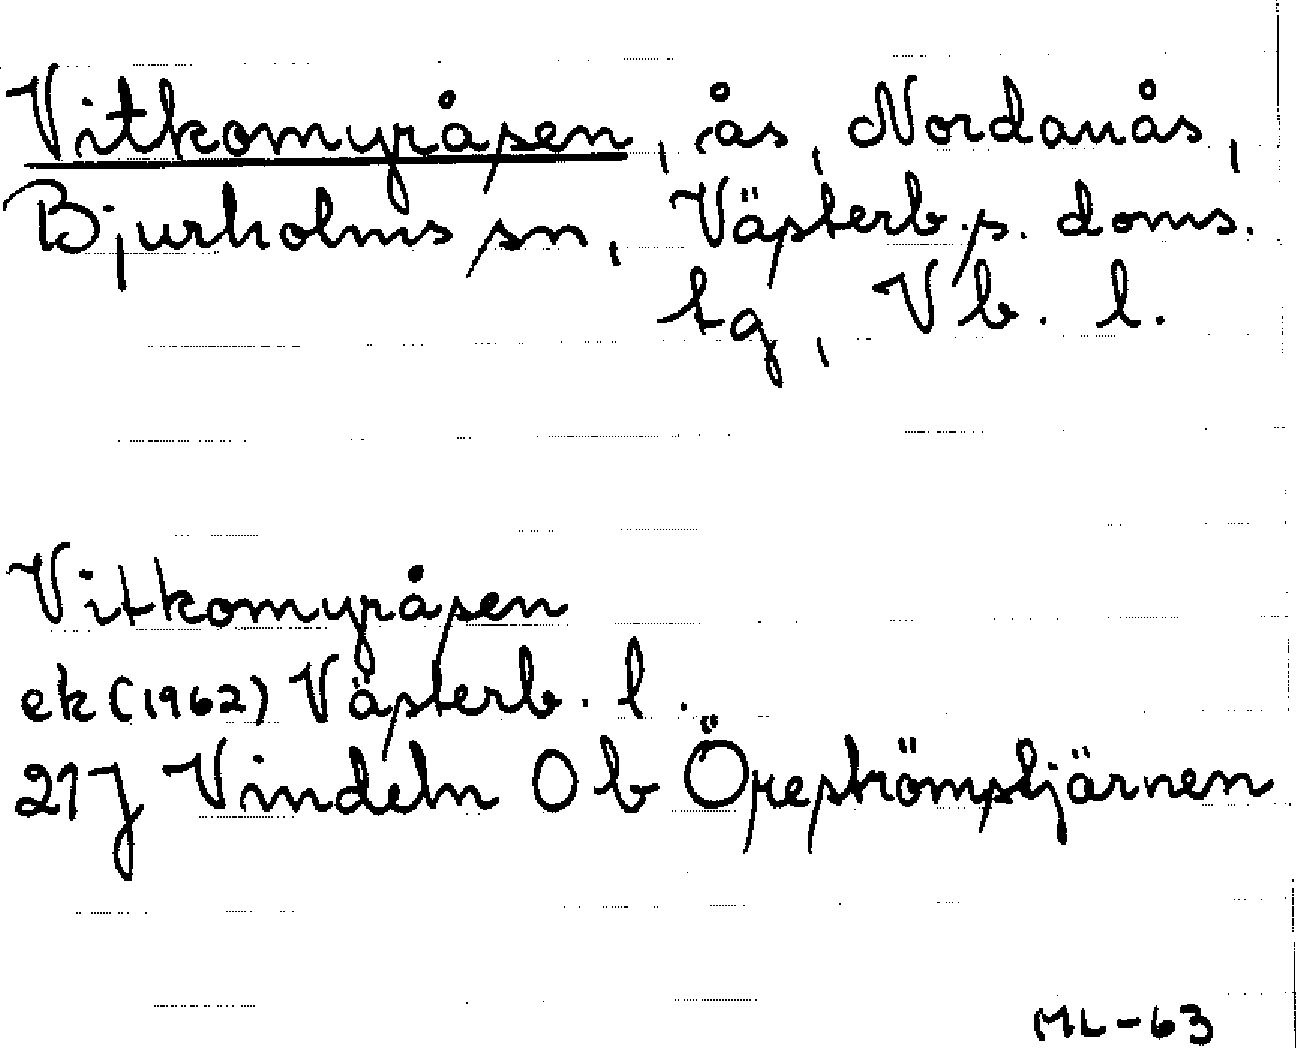 Vitkomyråsen, ås, Nordanås,
Bjurholms sn, Västerb.s. doms.
tg, Vb. l.
Vitkomyråsen
ek (1962) Västerb. l.
21J Vindeln 0b Öreströmstjärnen
ML-63